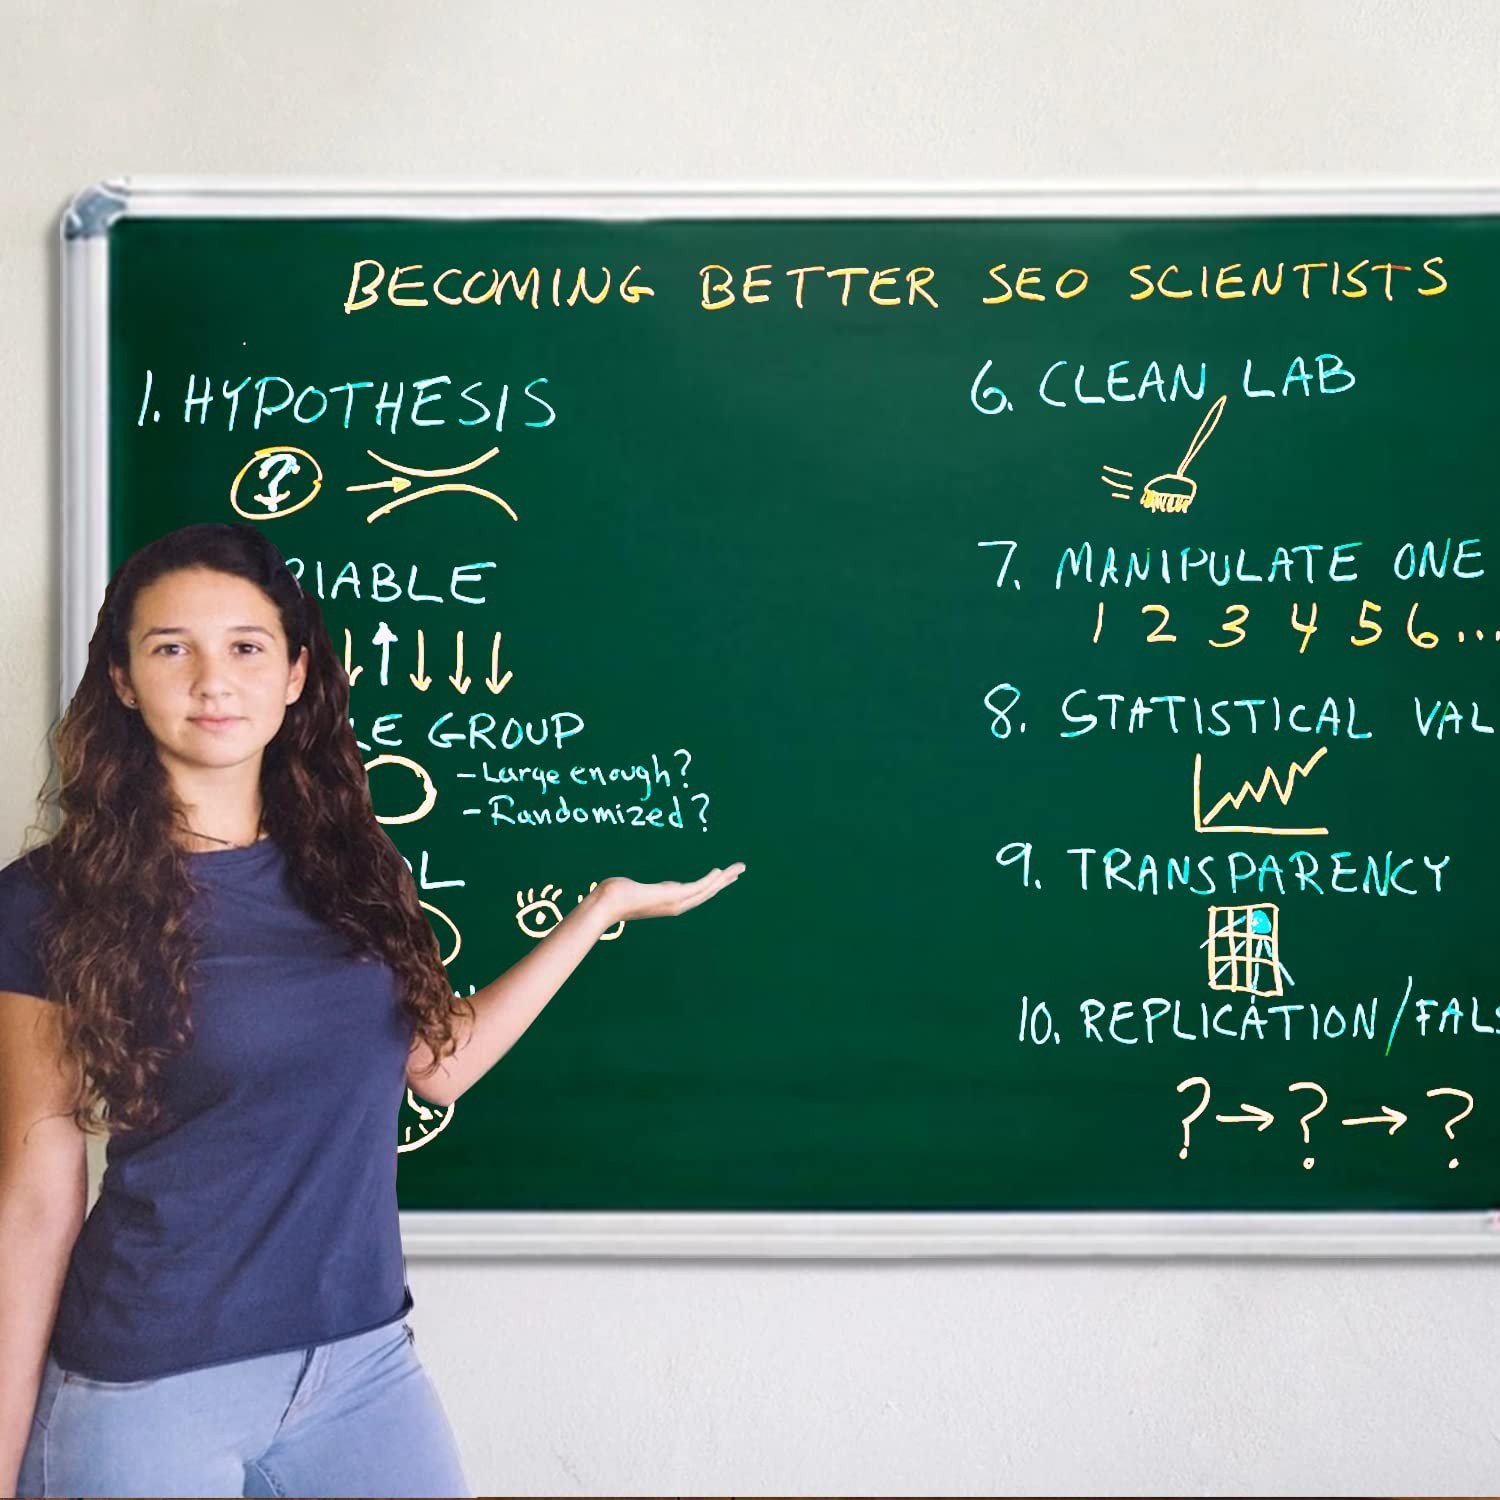 BECOMING BETTER SEO SCIENTISTS
1. HYPOTHESIS
?
GROUP
- Large enough?
- Randomized?
6. CLEAN LAB
7. MANIPULATE ONE
1 2 3 4 5 6...
8. STATISTICAL
9. TRANSPARENCY
10. REPLICATION/
? → ? → ?